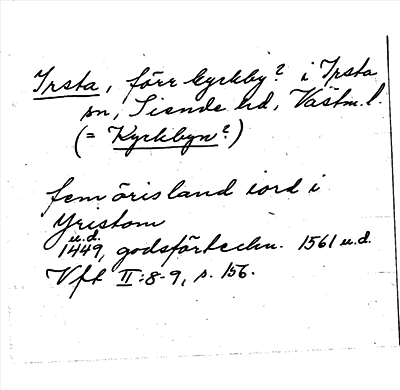 Irsta, förr kyrkby? i Irsta
sn, Siende hd, Västm. l.
(= Kyrkbyn?)
fem öris land iord i
Yristom
u.d.
1449, godsförteckn. 1561 u.d.
Vft II:8-9, s. 156.